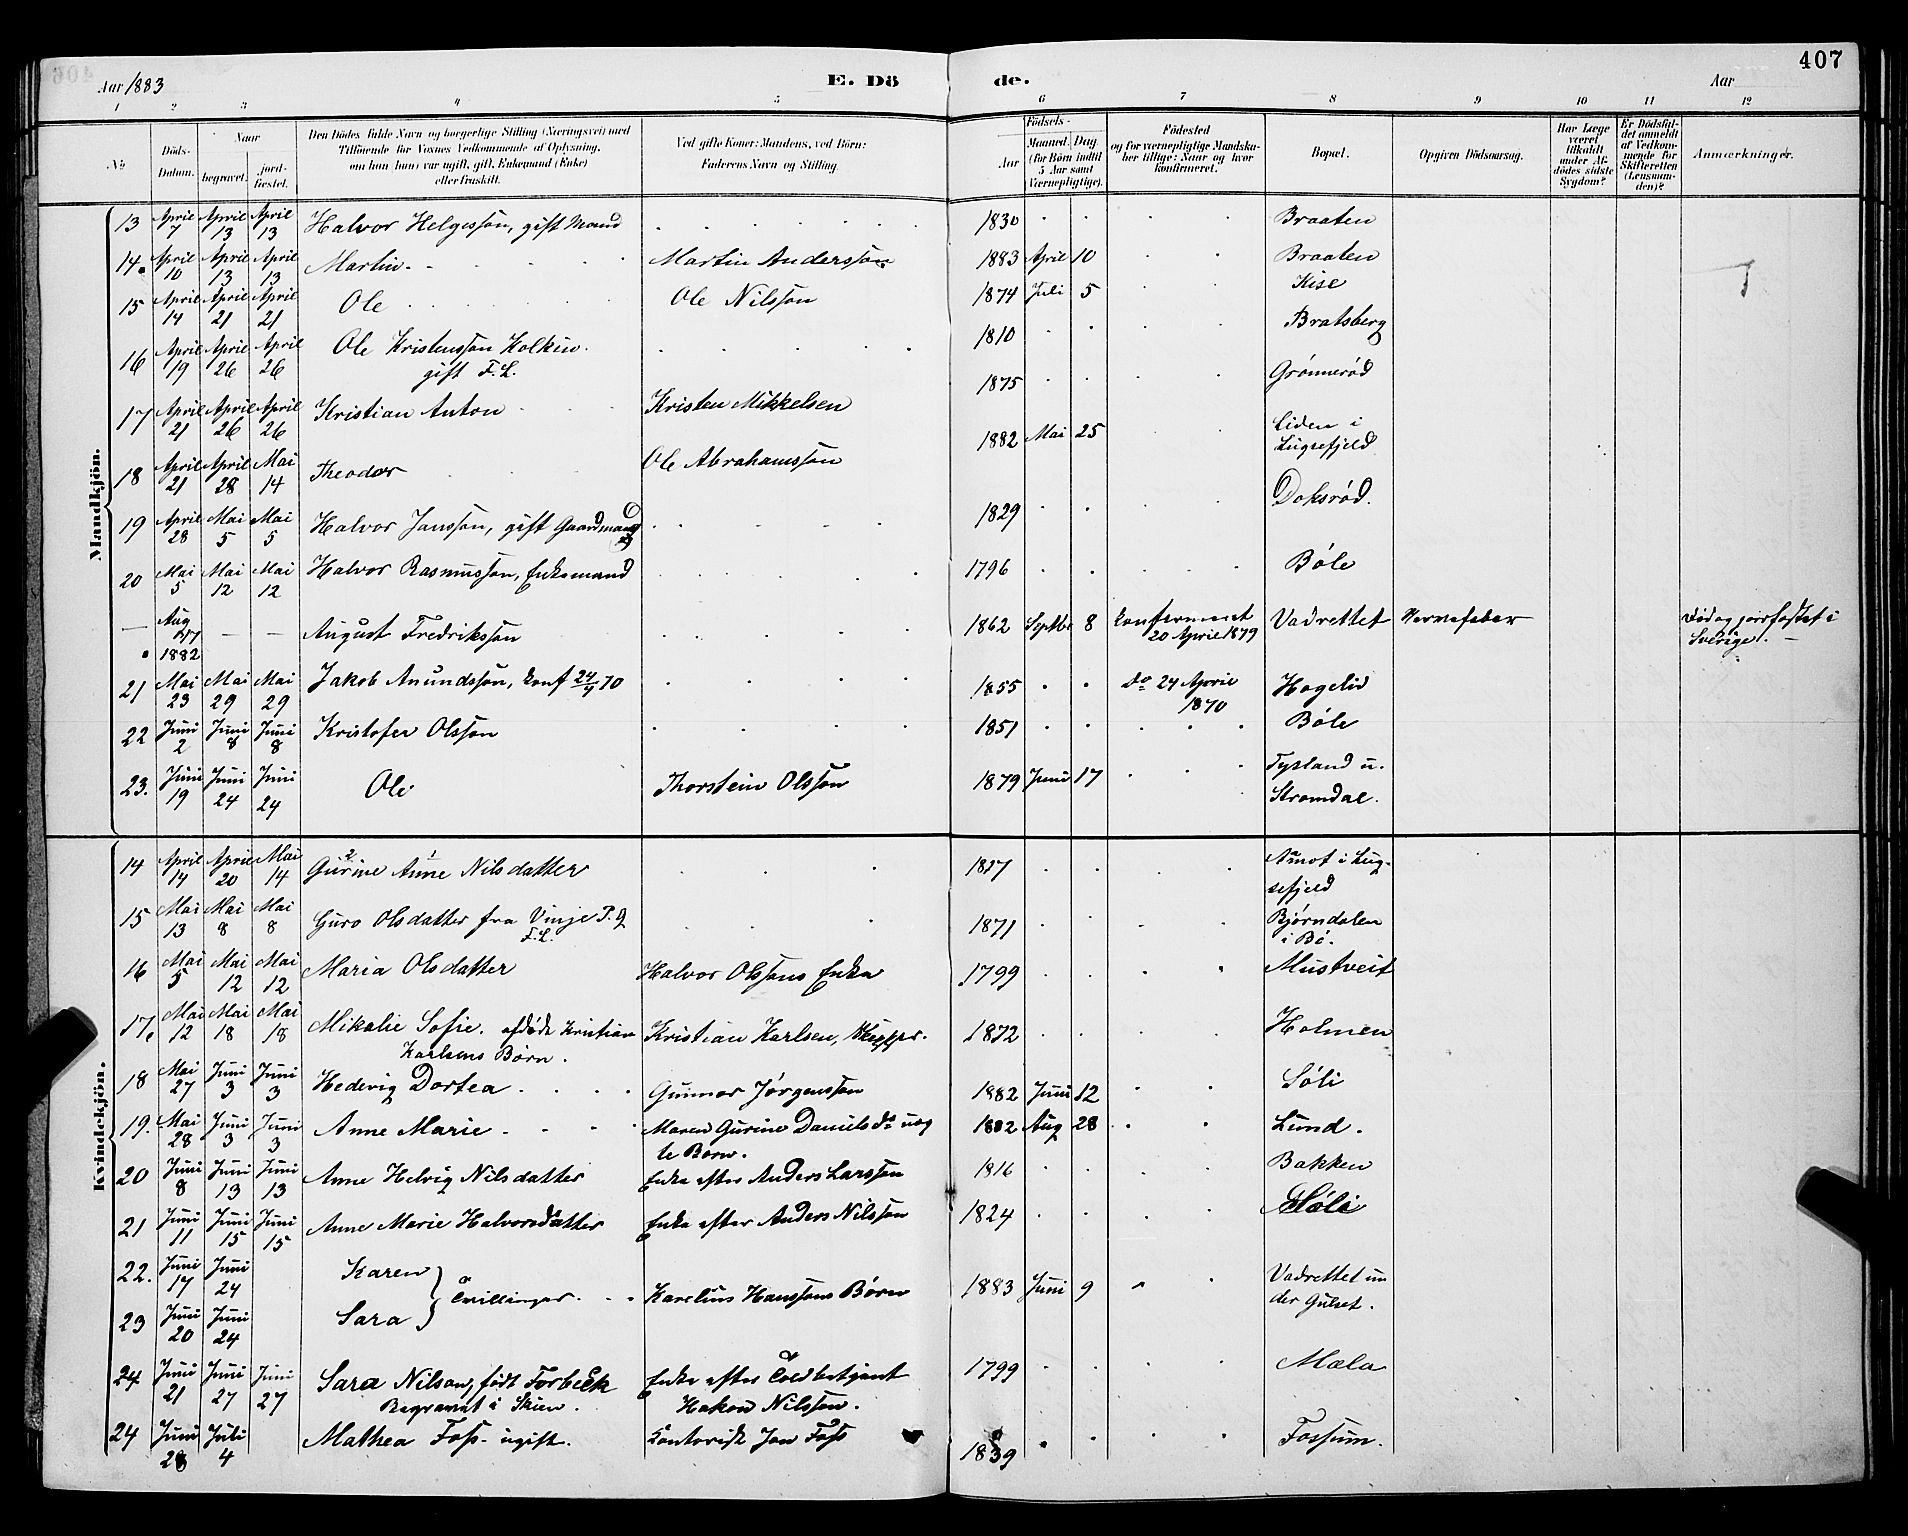 407
Aar 1883
E. Dö de.
Aar
1 2 3 4 5 6 7 8 9 10 11 12
No
Döds-Datum.
Naar
begravet.
jord-fæstet.
Den Dödes fulde Navn og borgerlige Stilling (Næringsvei) med
Tilföiende för Voxnes Vedkommende af Oplysning,
om han (hun) var ugift, gift, Enkemand (Enke)
eller fraskilt.
Ved gifte Koner: Mandens, ved Börn:
Faderens Navn og Stilling.
Födsels-
Aar
Maaned. Dag
(for Börn indtil
5 Aar samt
Værnepligtige).
Födested
og for værnepligtige Mandska-
ber tillige: Naar og hvor
konfirmeret.
Bopæl.
Opgiven Dödsaarsag.
Har Læge
været
tilkaldt
under Af-
dödes sidste
Sygdom?
Er Dödsfal-
det anmeldt
af Vedkom-
mende for
Skifteretten
(Lensman-
den)?
Anmærkninger.
Mandkjön.
13 April 7 April 13 April 13 Halvor Helgesson, gift Mand 1830 Braaten
14 April 10 April 13 April 13 Martin Martin Andersson 1883 April 10 Braaten
15 April 14 April 21 April 21 Ole Ole Nilsson 1874 Juli 5 Kise
16 April 19 April 26 April 26 Ole Kristensson Kolkin 1810 Bratsberg
gift F. L.
17 April 21 April 26 April 26 Kristian Anton Kristen Mikkelsen 1875 Grønnerød
18 April 21 April 28 Mai 14 Theodor Ole Abrahamsson 1882 Mai 25 Liden i
Lugsefjeld
19 April 28 Mai 5 Mai 5 Halvor Jansson, gift Gaardmand 1829 Doksrød.
20 Mai 5 Mai 12 Mai 12 Halvor Rasmusson, Enkemand 1796 Bøle
— Aug 17 1882 — — August Fredriksson 1862 Septbr 8 konfirmeret
20 April 1879 Vadrettet Nervefeber Død og jordfæstet i
Sverige. —
21 Mai 23 Mai 29 Mai 29 Jakob Anundsson, konf 24/4 70 1855 do 24 April
1870 Hogelid
22 Juni 2 Juni 8 Juni 8 Kristofer Olsson 1851 Bøle
23. Juni 19 Juni 24 Juni 24 Ole Thorstein Olsson 1879 Juni 17 Tysland u.
Stromdal.
Kvindekjön.
14 April 14 April 20 Mai 14 Gurine Anne Nilsdatter 1827 Amot i Lug-
sefjeld
15 Mai 13 Mai 8 Mai 8 Guro Olsdatter fra Vinje P. g 1871 Bjørndalen
F. L. i Bø.
16 Mai 5 Mai 12 Mai 12 Maria Olsdatter Halvor Olssons Enke 1799 Mustveit
17 Mai 12 Mai 18 Mai 18 Mikalie Sofie. afdøde Kristian Kristian Karlsen, Skipper. 1872 Holmen
Karlsens Børn.
18 Mai 27 Juni 3 Juni 3 Hedevig Dortea Gunnar Jørgensson 1882 Juni 12 Søli
19. Mai 28 Juni 3 Juni 3 Anne Marie Maren Gurine Daniels dr uæg
te Børn. 1882 Aug 28 Lund.
20 Juni 8 Juni 13 Juni 13 Anne Helvig Nilsdatter Enke efter Anders Larsson 1816 Bakken
21 Juni 11 Juni 15 Juni 15 Anne Marie Halvorsdatter Enke efter Anders Nilsson 1824 Søli
22. Juni 17 Juni 24 Karen
Tvillinger. Karelius Hanssons Børn 1883 Juni 9 Vadrettet un
der Gulset.
23 Juni 20 Juni 24 Sara
24 Juni 21 Juni 27 Juni 27 Sara Nilson, født Forbeck Enke efter Toldbetjent 1799 Mæla
Begravet i Skien. Hakon Nilsson.
24 Juni 28 Juli 4 Mathea Foss. ugift. Kontorist Jon Foss 1839 Fossum.